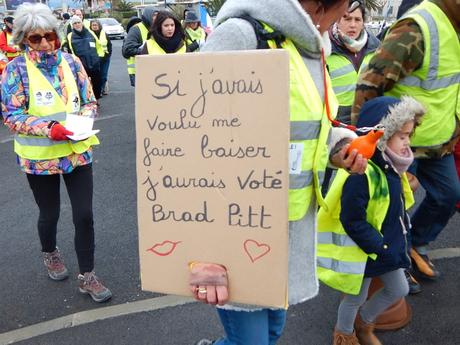 Si j'avais
voulu me
faire baiser
j'aurais voté
Brad Pitt